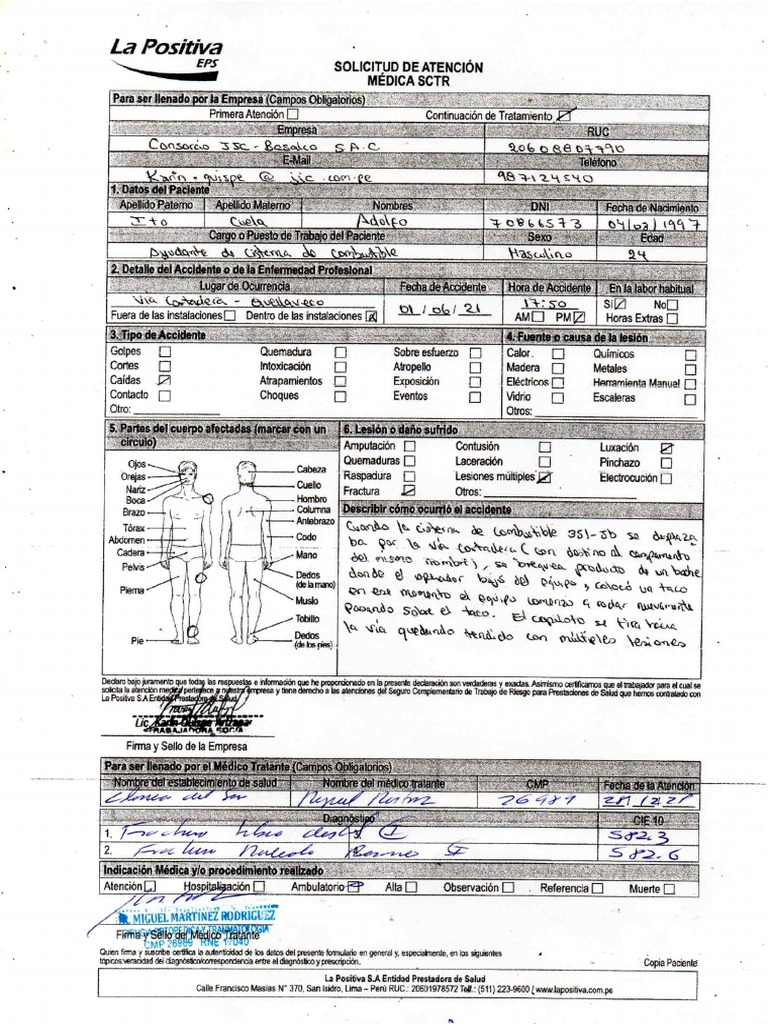 La Positiva
EPS
SOLICITUD DE ATENCIÓN
MÉDICA SCTR
Para ser llenado por la Empresa (Campos Obligatorios)
Primera Atención Continuación de Tratamiento
Empresa RUC
Consorcio JJC - Besalco S A.C 20608807790
E-Mail Teléfono
Karin.quispe @ jjc.com.pe 987124540
1. Datos del Paciente
Apellido Paterno Apellido Materno Nombres DNI Fecha de Nacimiento
Ito Cuela Adolfo 70866573 04/03/1997
Cargo o Puesto de Trabajo del Paciente Sexo Edad
Ayudante de cisterna de combustible Masculino 24
2. Detalle del Accidente o de la Enfermedad Profesional
Lugar de Ocurrencia Fecha de Accidente Hora de Accidente En la labor habitual
Vía Cortadera - Quellaveco 01/06/21 17:50 Si No
Fuera de las instalaciones Dentro de las instalaciones AM PM Horas Extras
3. Tipo de Accidente 4. Fuente o causa de la lesión
Golpes Quemadura Sobre esfuerzo Calor Químicos
Cortes Intoxicación Atropello Madera Metales
Caídas Atrapamientos Exposición Eléctricos Herramienta Manual
Contacto Choques Eventos Vidrio Escaleras
Otro: Otros:
5. Partes del cuerpo afectadas (marcar con un
círculo)
Ojos
Orejas
Nariz
Boca
Brazo
Tórax
Abdomen
Cadera
Pelvis
Pierna
Pie
Cabeza
Cuello
Hombro
Columna
Antebrazo
Codo
Mano
Dedos
(de la mano)
Muslo
Tobillo
Dedos
(de los pies)
6. Lesión o daño sufrido
Amputación Contusión Luxación
Quemaduras Laceración Pinchazo
Raspadura Lesiones múltiples Electrocución
Fractura Otros:
Describir cómo ocurrió el accidente
Cuando la cisterna de combustible 351-Jb se desplaza
ba por la vía cortadera (con destino al campamento
del mismo nombre), se broquea producto de un bache
donde el operador bajó del equipo, colocó un taco
en ese momento el equipo comenzó a rodar nuevamente
pasando sobre el taco. El copiloto se tira hacia
la vía quedando tendido con múltiples lesiones
Declaro bajo juramento que todas las respuestas e información que he proporcionado en la presente declaración son verdaderas y exactas. Asimismo certificamos que el trabajador para el cual se
solicita la atención medica pertenece a nuestra empresa y tiene derecho a las atenciones del Seguro Complementario de Trabajo de Riesgo para Prestaciones de Salud que hemos contratado con
La Positiva S.A Entidad Prestadora de Salud
Lic. Karin Quispe
TRABAJADORA SOCIAL
Firma y Sello de la Empresa
Para ser llenado por el Médico Tratante (Campos Obligatorios)
Nombre del establecimiento de salud Nombre del médico tratante CMP Fecha de la Atención
Clínica del Sur Miguel 26989 28.12.21
Diagnóstico CIE 10
1. Fractura tibia I S82.3
2. Fractura Maleolo I S82.6
Indicación Médica y/o procedimiento realizado
Atención Hospitalización Ambulatorio Alta Observación Referencia Muerte
DR. MIGUEL MARTÍNEZ RODRIGUEZ
CIRUGIA ORTOPEDICA Y TRAUMATOLOGIA
Firma y Sello del Médico Tratante
CMP 26989 RNE 17040
Quien firma y suscribe certifica la autenticidad de los datos del presente formulario en general y, especialmente, en los siguientes
tópicos:veracidad del diagnóstico/correspondencia entre el diagnóstico y prescripción.
Copia Paciente
La Positiva S.A Entidad Prestadora de Salud
Calle Francisco Masias N° 370, San Isidro, Lima – Perú RUC.: 20601978572 Telf.: (511) 223-9600 / www.lapositiva.com.pe